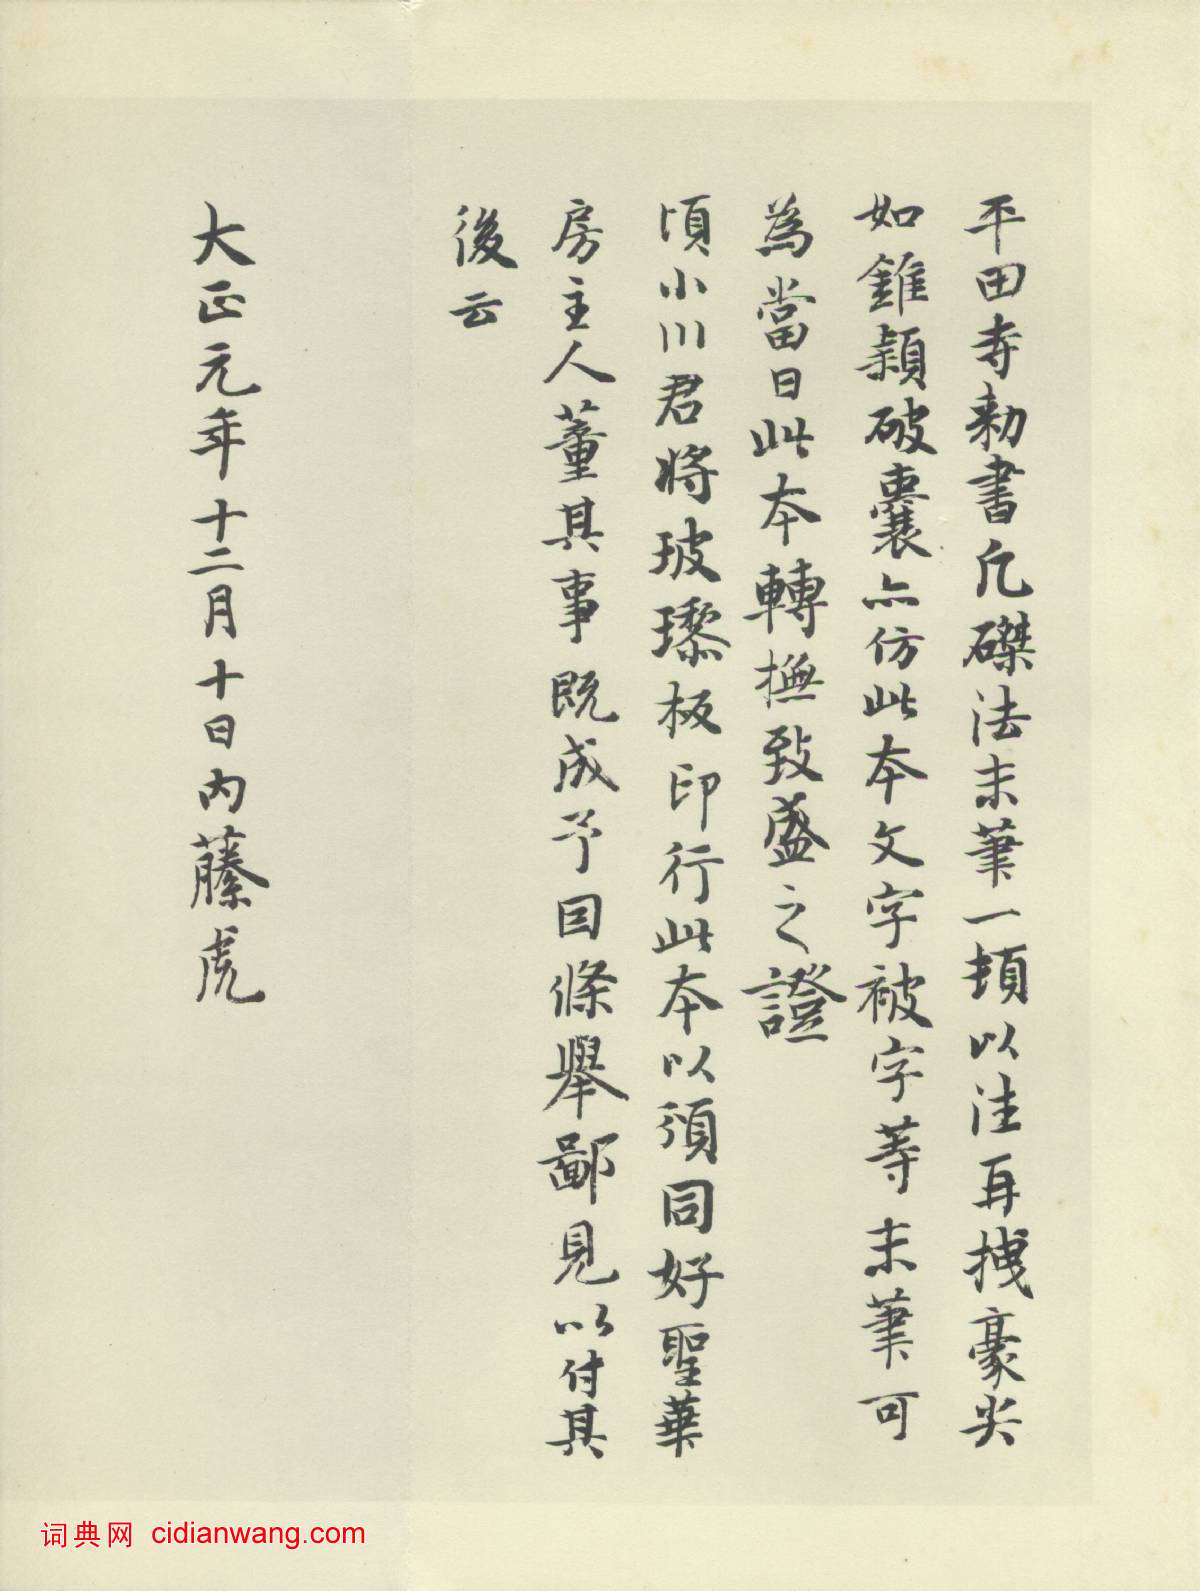 平田寺勅書凡磔法末筆一頓以洼再拽豪尖
如錐穎破囊亦仿此本文字被字等末筆可
為當日此本轉撫致盛之證
頃小川君將玻瓈板印行此本以頒同好聖華
房主人董其事既成予因條舉鄙見以付其
後云
大正元年十二月十日内藤虎
词典网 cidianwang.com